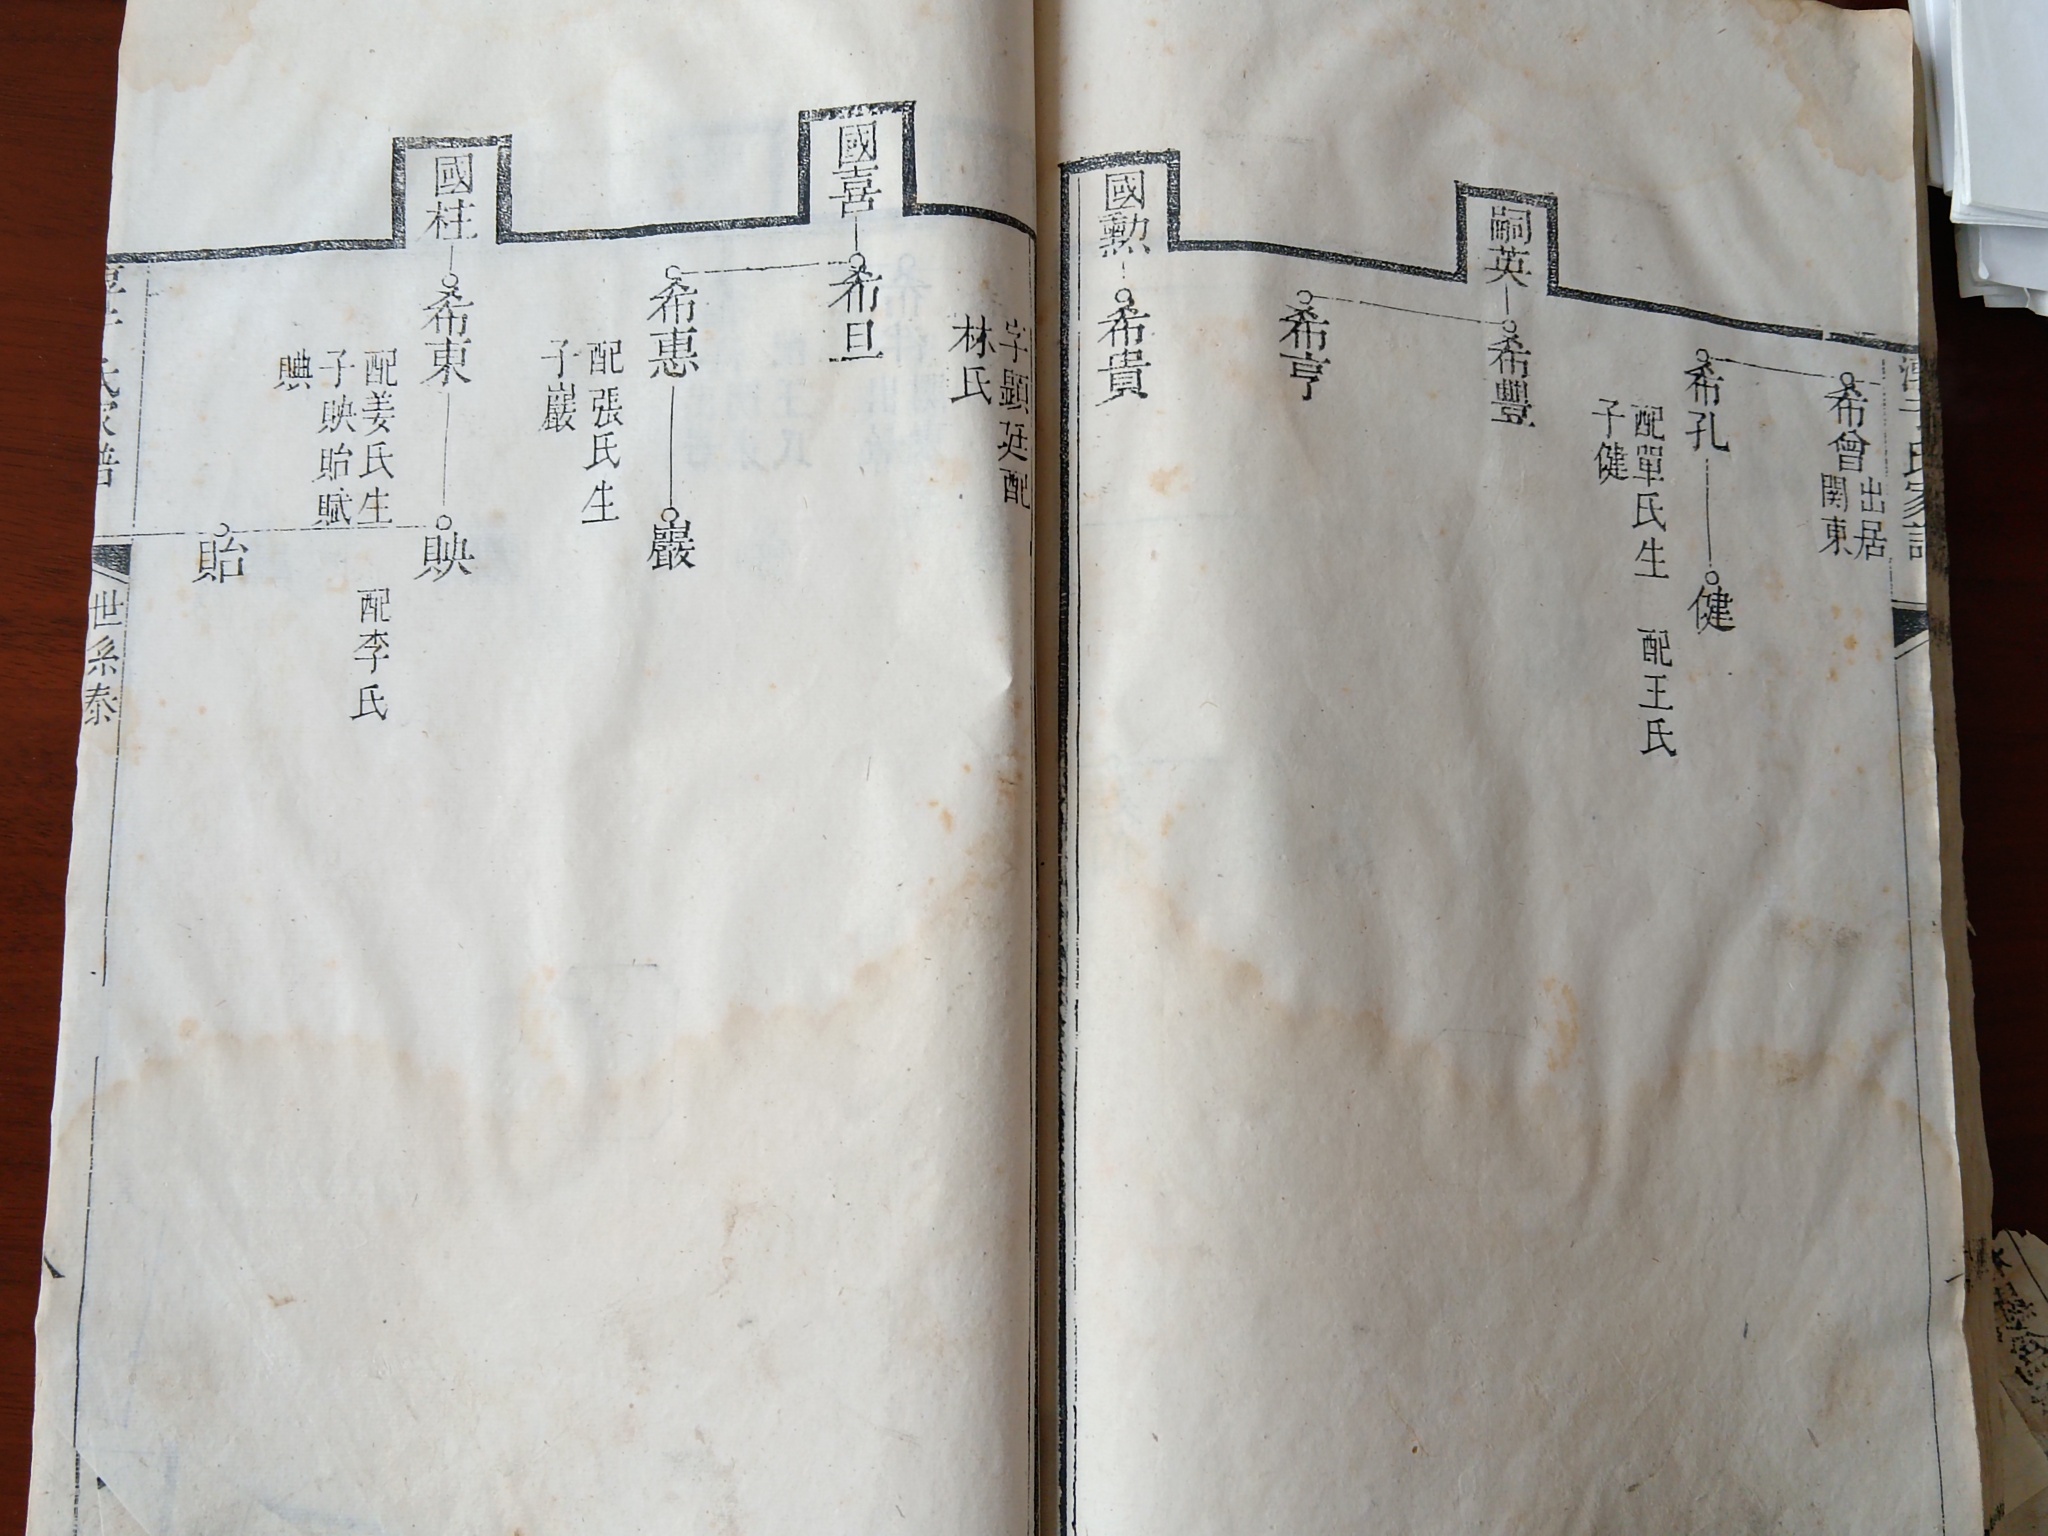 氏家譜
希曾
出居
関東
希孔
配單氏生
子健
健
配王氏
嗣英
希豐
希亨
國勲
希貴
字顯廷配
林氏
國喜
希旦
希惠
配張氏生
子巖
巖
國柱
希東
配姜氏生
子䀋貽賦
賟
配李氏
貽
氏家譜
世系泰